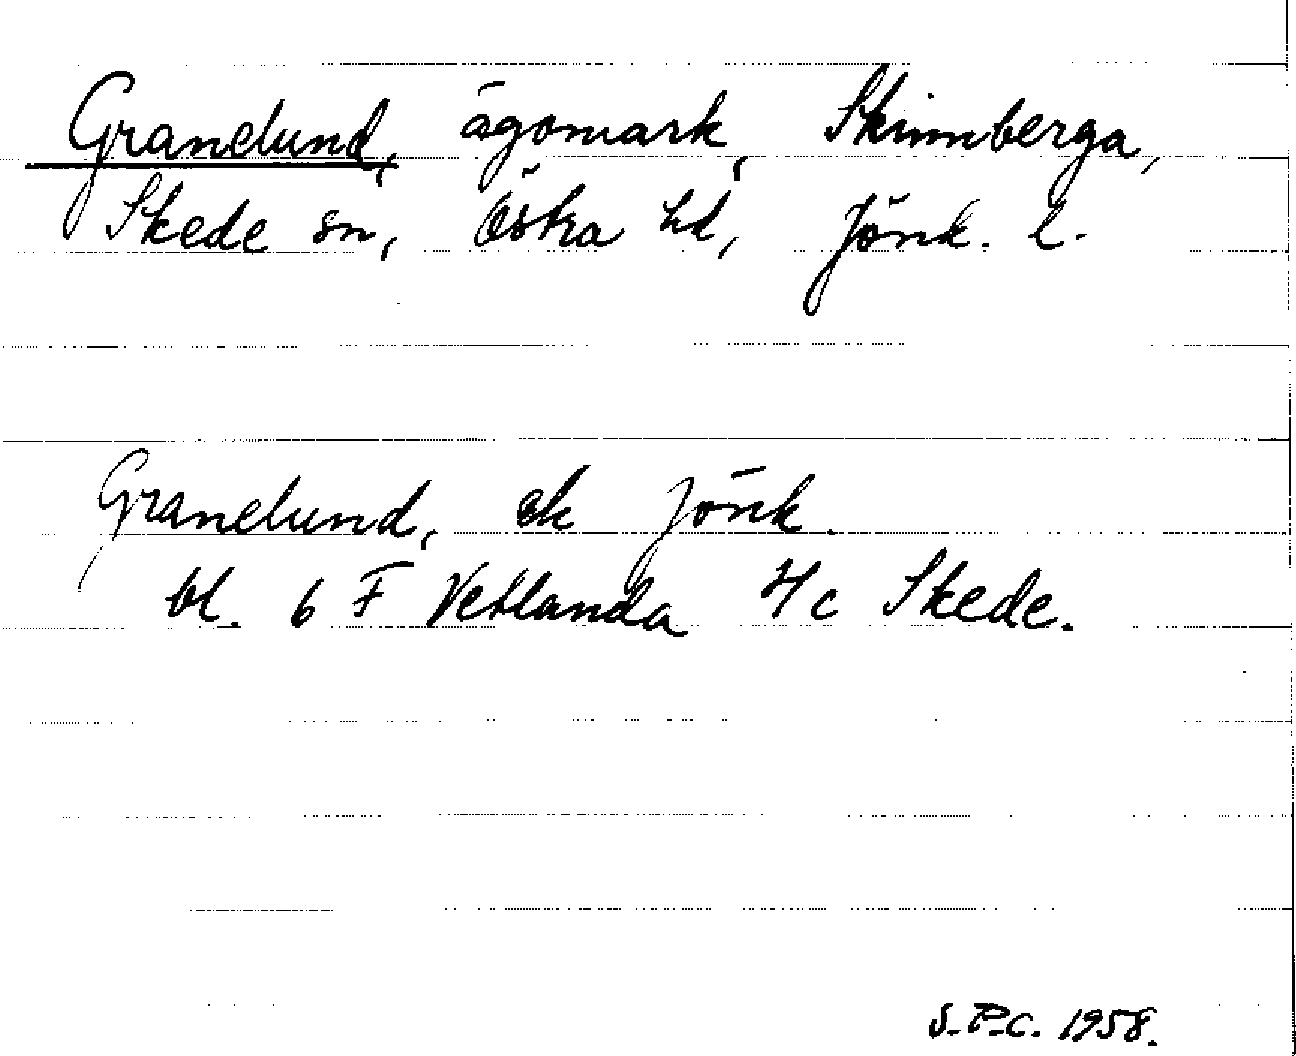 Granelund, ägomark, Skinnberga,
Skede sn, Östra hd, Jönk. l.
Granelund, ek Jönk.
bl. 6 F Vetlanda 4c Skede.
S.P.C. 1958.